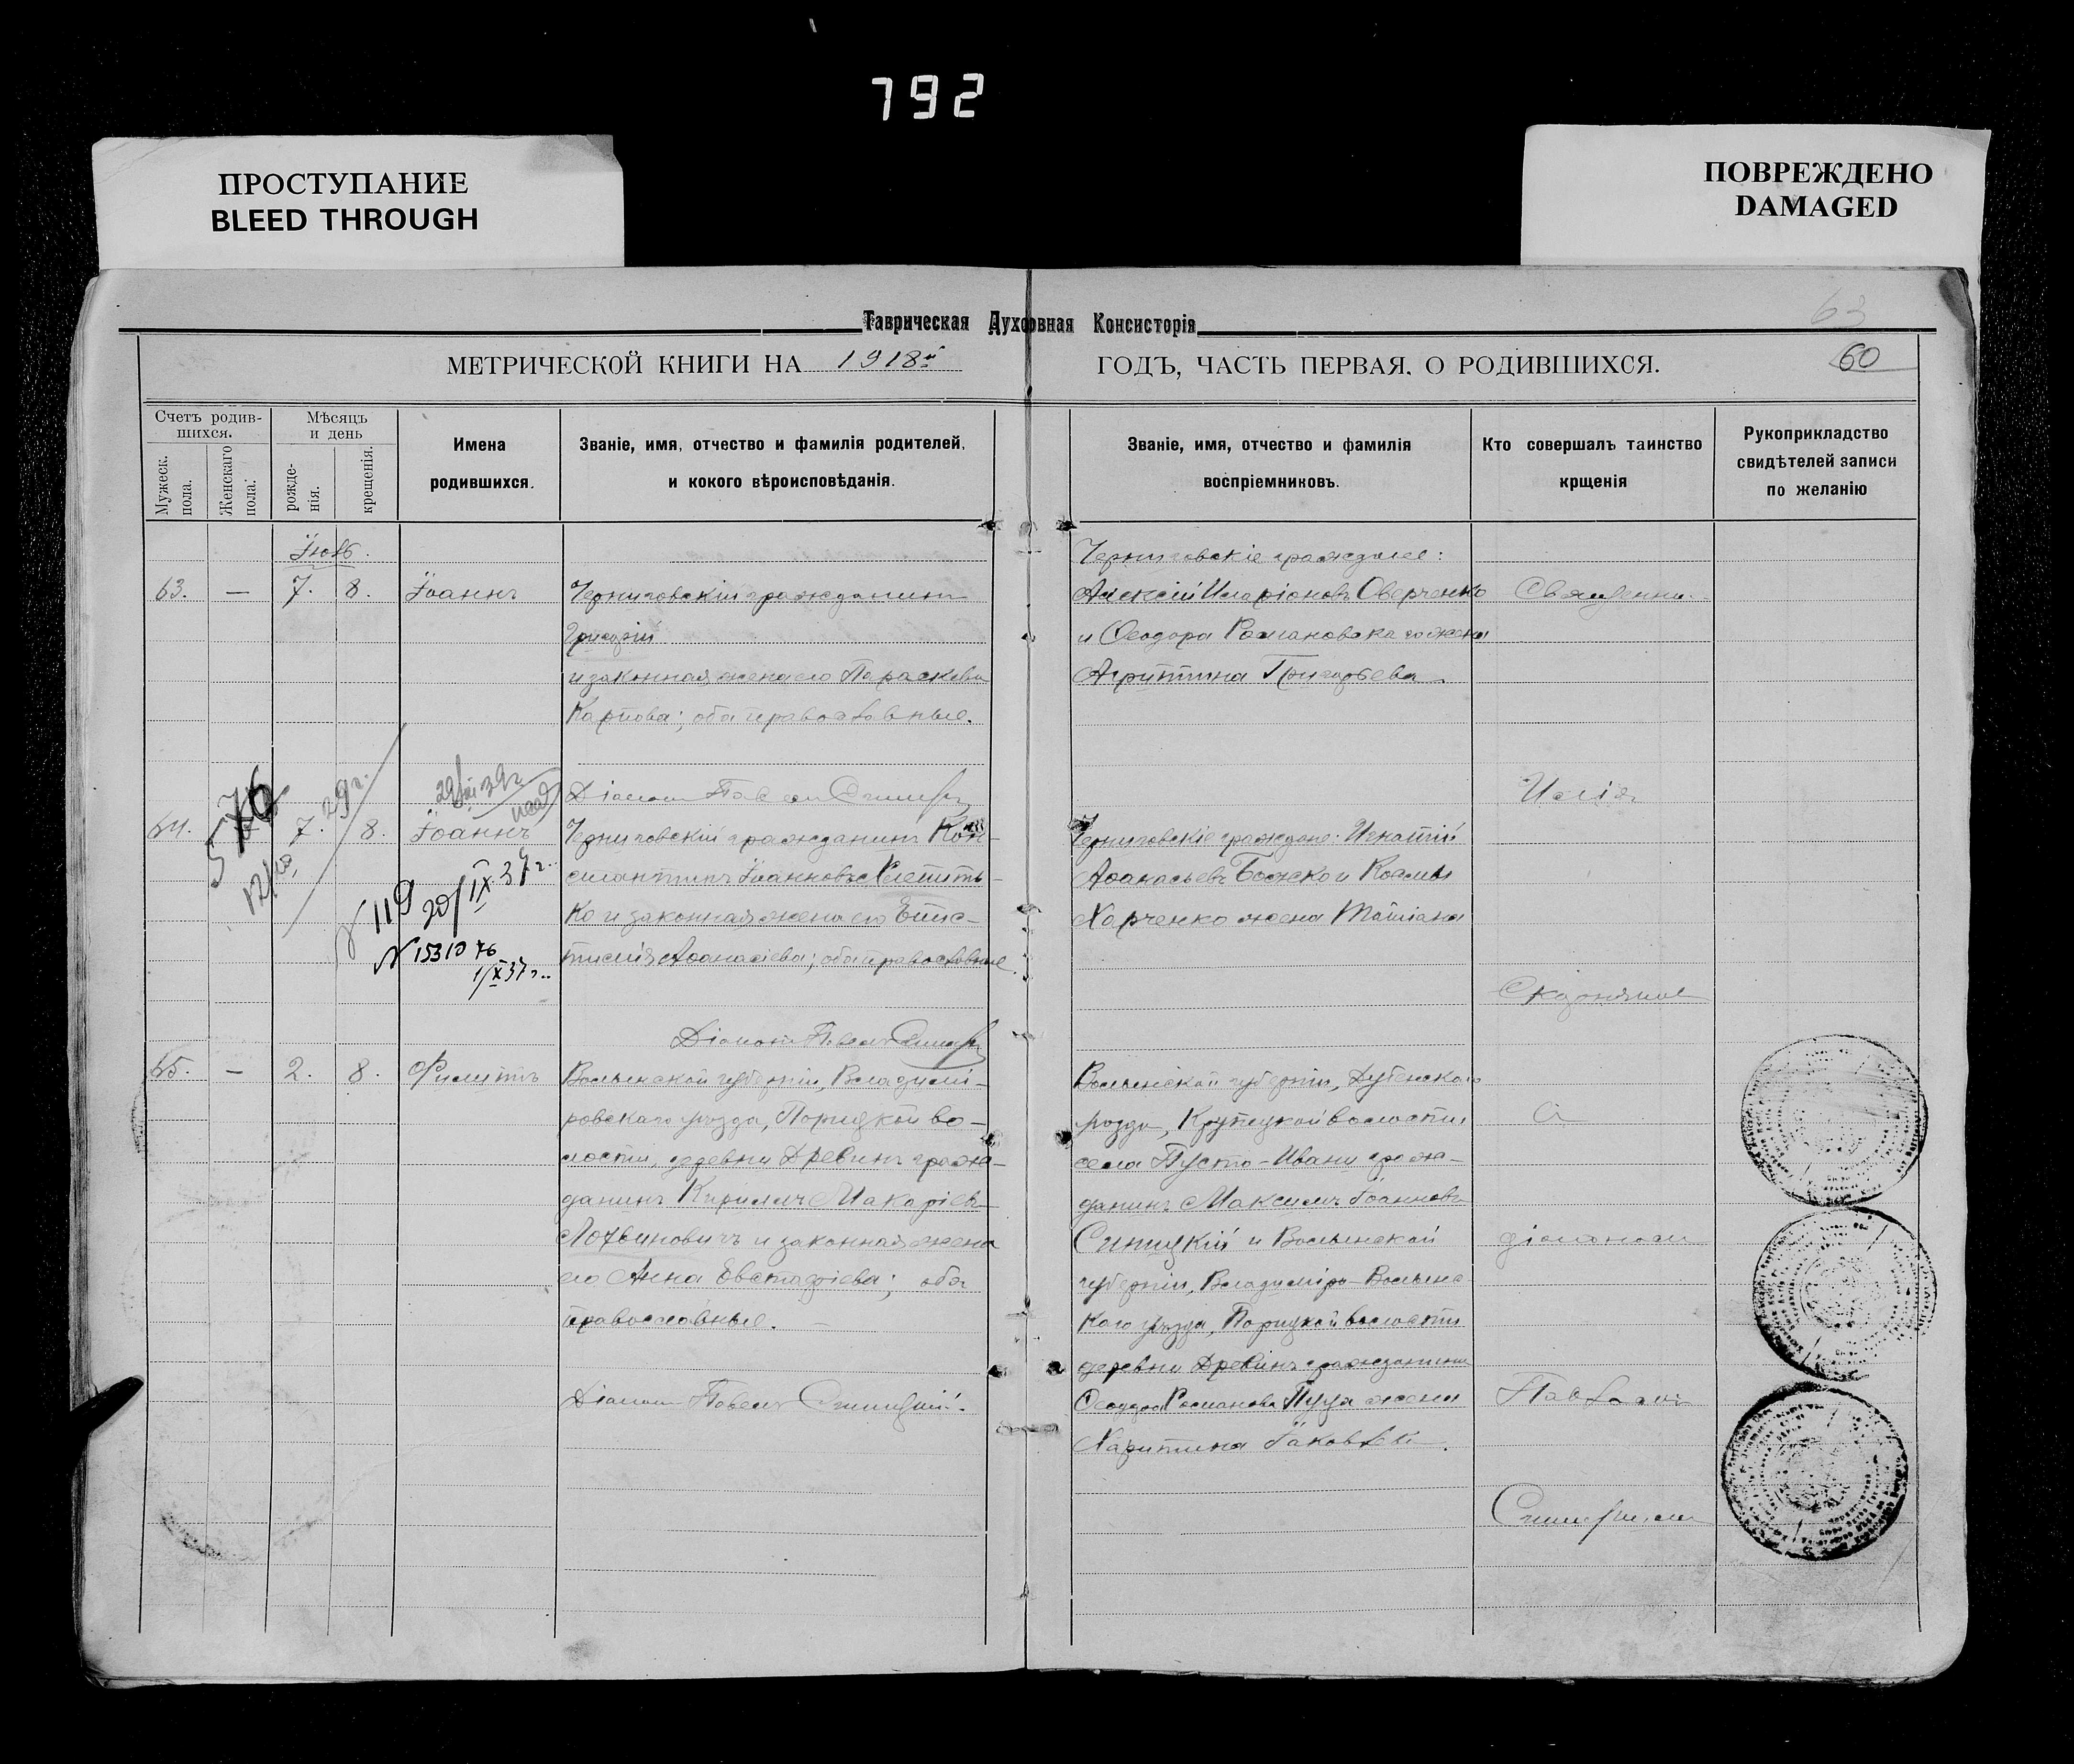 792
ПРОСТУПАНИЕ
BLEED THROUGH
ПОВРЕЖДЕНО
DAMAGED
63
Таврическая Духовная Консисторія
МЕТРИЧЕСКОЙ КНИГИ НА 1918й ГОДЪ, ЧАСТЬ ПЕРВАЯ. О РОДИВШИХСЯ.
60
Счетъ родив-
шихся.
Мужеск.
пола.
Женскаго
пола.
Мѣсяцъ
и день
рожде-
нія.
крещенія.
Имена
родившихся.
Званіе, имя, отчество и фамилія родителей,
и кокого вѣроисповѣданія.
Званіе, имя, отчество и фамилія
воспріемниковъ.
Кто совершалъ таинство
крщенія
Рукоприкладство
свидѣтелей записи
по желанію
63. — 7. 8. Іоаннъ
Черниговскій гражданинъ
и законная жена его Параскева
Карпова; оба православные.
Черниговскіе граждане:
Алексій Иларіоновъ Оверченко
и Ѳеодора Романовска го жена
Агриппина Григорьева
Священни-
576
29 г.
64. 7. 8. Іоаннъ
N 119 20/IX 37 г.
N 1531076
1/X 37 г.
Черниговскій гражданинъ Кон-
стантинъ Іоанновъ
ко и законная жена его Епис-
тимія Аѳанасіева; оба православные
Діаконъ Павелъ
Черниговскіе граждане: Игнатій
Аѳанасьевъ Божко и Космы
Харченко жена Татіана
Илія
65. — 2. 8. Филиппъ
Волынской губерніи, Владимі-
ровскаго уѣзда, Порицкой во-
лости, деревни Древинъ граж-
данинъ Кириллъ Макаріевъ
Лотвиновичъ и законная жена
его Анна Евстафіева; оба
православные.
Діаконъ Павелъ Синицкій.
Волынской губерніи, Дубенскаго
уѣзда, Крупецкой волости
села Пусто-Ивани граж-
данинъ Максимъ Іоанновъ
Синицкій и Волынской
губерніи, Владиміро-Волынс
каго уѣзда, Порицкой волости
деревни Древинъ гражданина
Ѳеодора Романова жена
Харитина Іаковлева.
съ
діакономъ
Павломъ
Синицкимъ